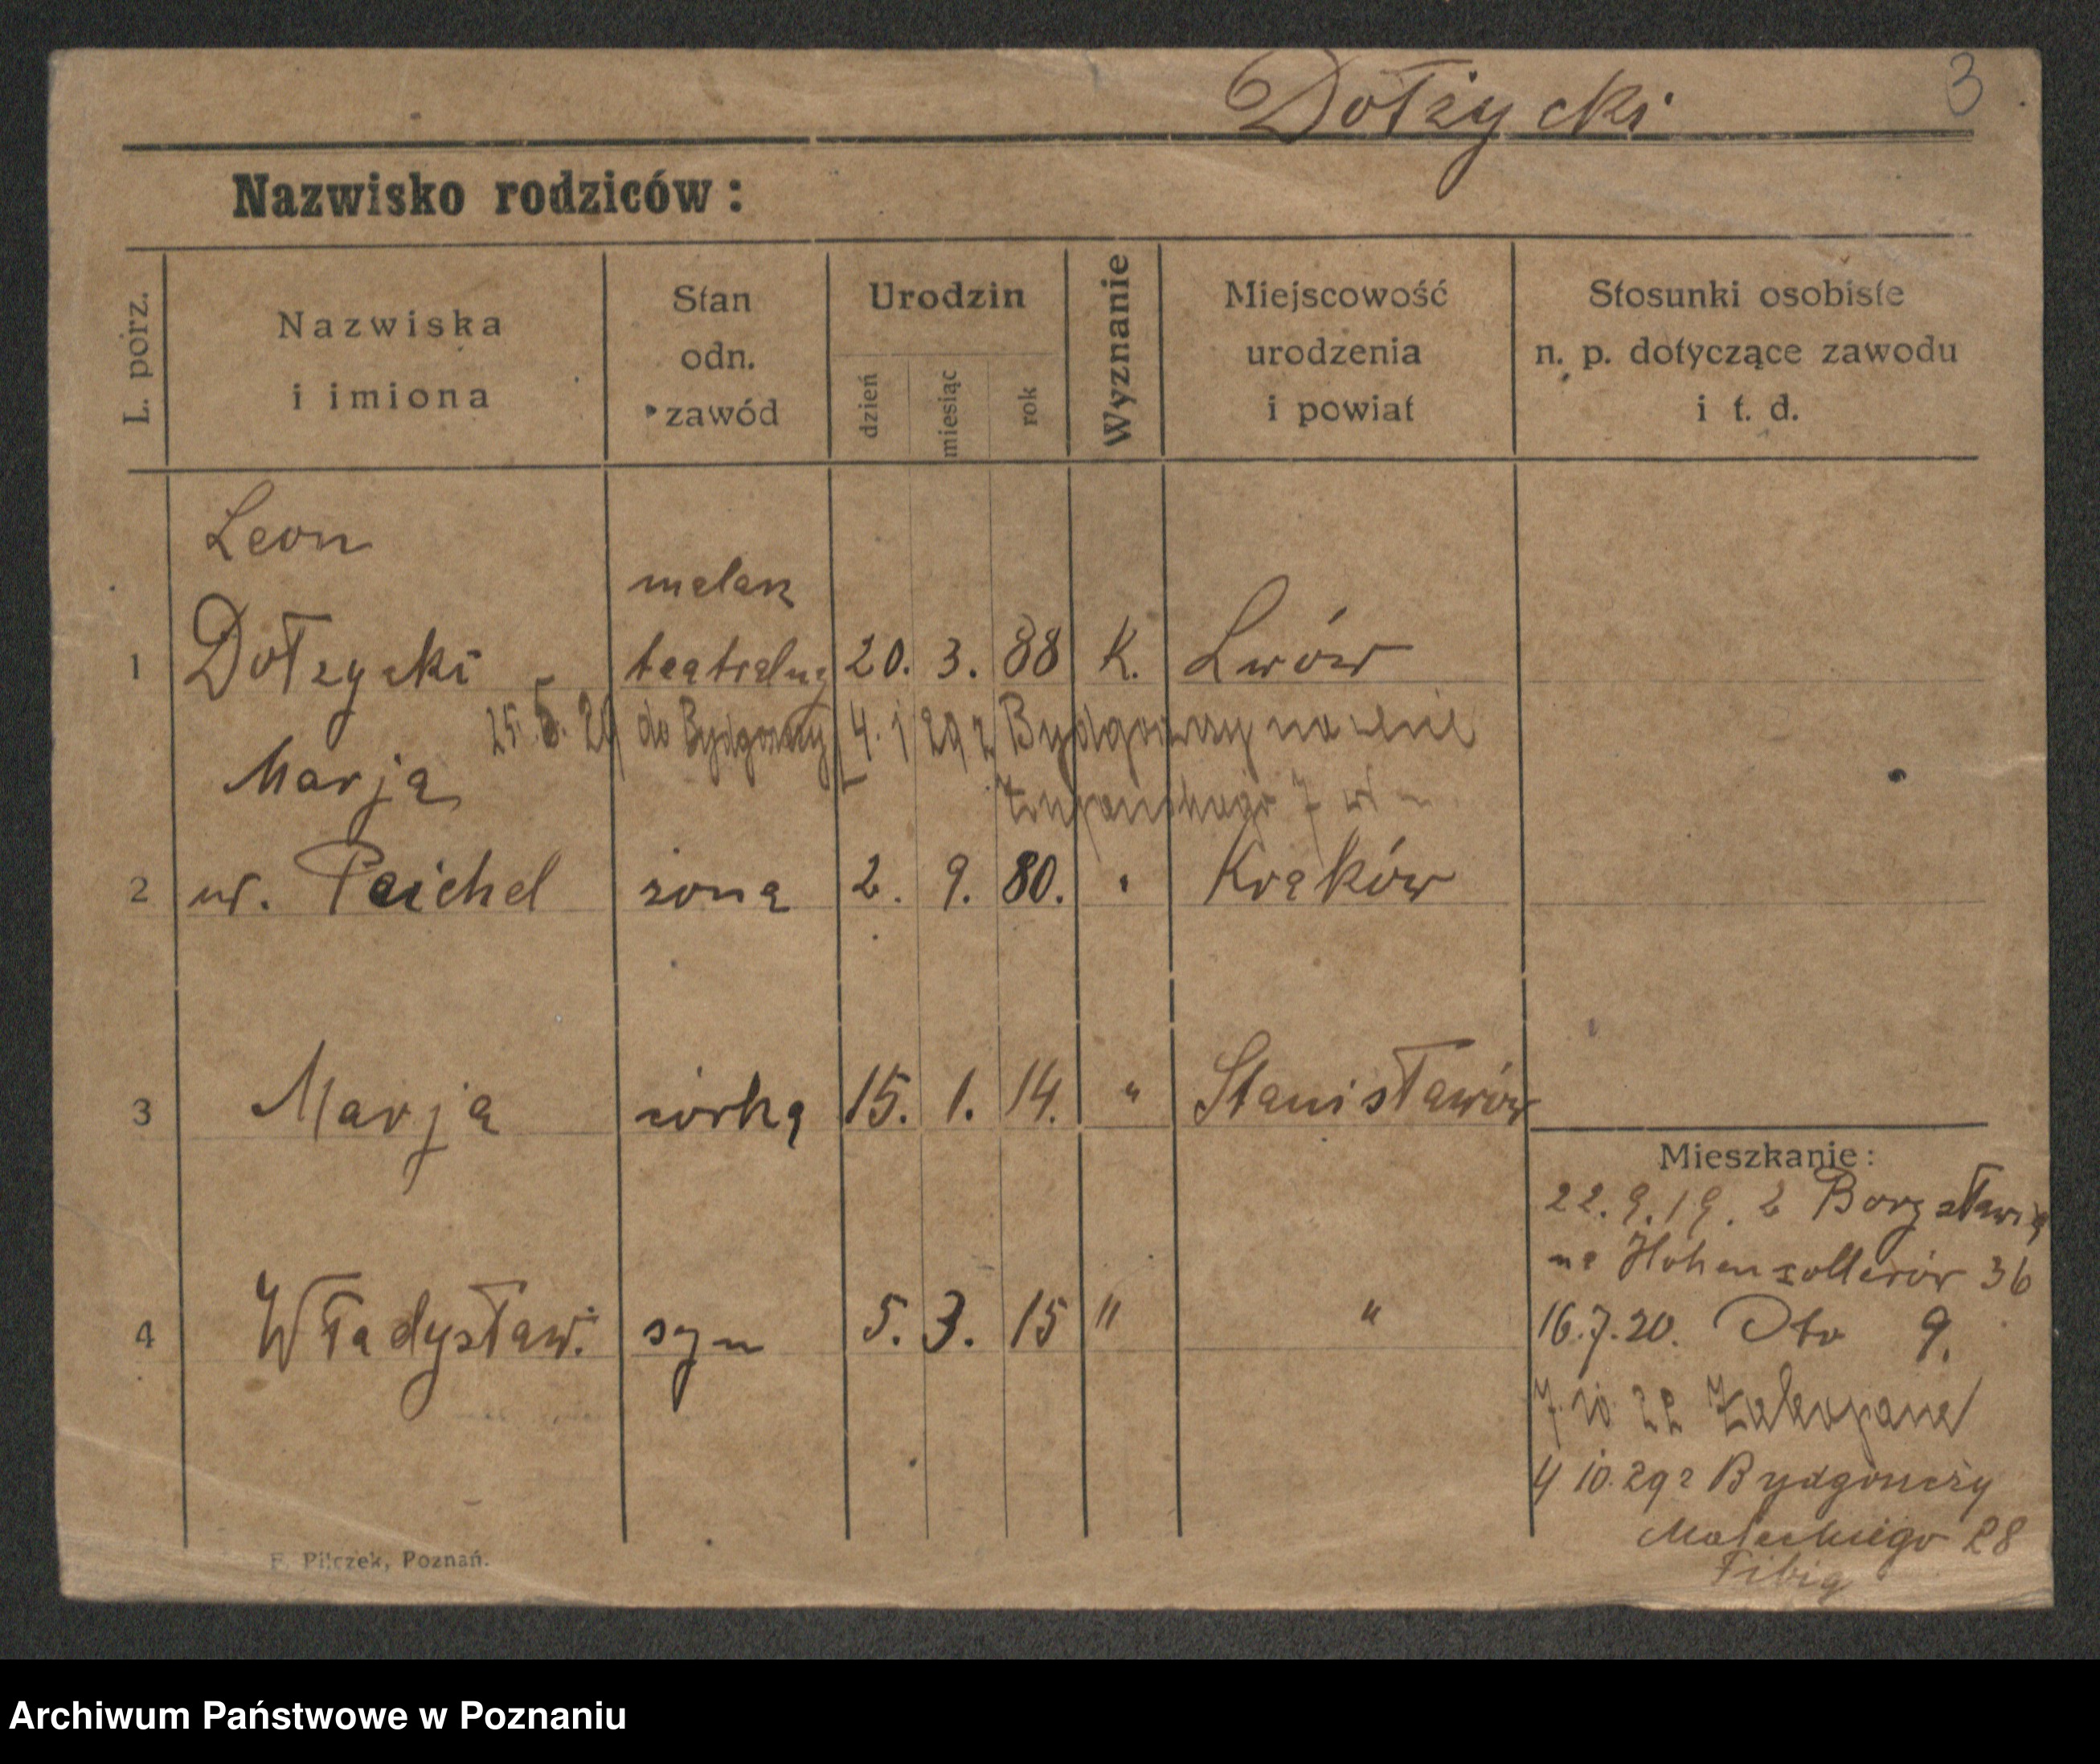 Dołżycki 3
Nazwisko rodziców:
L. porz.
Nazwiska
i imiona
Stan
odn.
zawód
Urodzin
dzień
miesiąc
rok
Wyznanie
Miejscowość
urodzenia
i powiat
Stosunki osobiste
n. p. dotyczące zawodu
i t. d.
Leon
malarz
1 Dołżycki teatralny 20. 3. 88 K. Lwów
25. 5. 29 do Bydgoszczy 4. 29 z Bydgoszczy na
Marja
7
2 ur. Peichel żona 2. 9. 80. " Kraków
3 Marja córka 15. 1. 14. " Stanisławów
4 Władysław. syn 5. 3. 15 " "
Mieszkanie:
22.9.19. z Borysławia
na Hohenzollerów 36
16.7.20. Oto 9.
7. 10 22 Zakopane
4 10.29 z Bydgoszczy
Małeckiego 28
Fibig
F. Pilczek, Poznań.
Archiwum Państwowe w Poznaniu